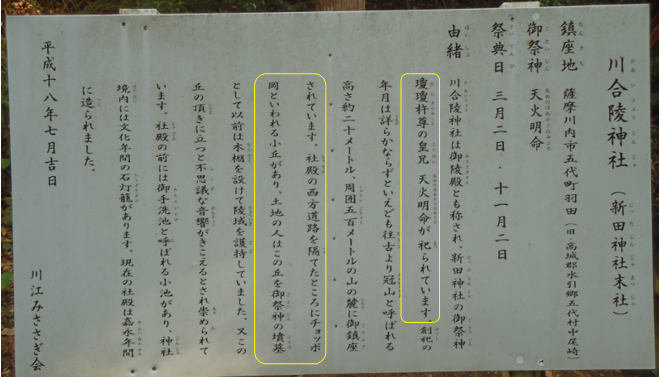 川合陵神社（新田神社末社）
鎮座地　薩摩川内市五代町羽田（旧・高城郡水引郷五代村中尾崎）
御祭神　天火明命
祭典日　三月二日・十一月二日
由緒
川合陵神社は御陵殿とも称され、新田神社の御祭神
瓊瓊杵尊の皇兄　天火明命が祀られています。創祀の
年月は詳らかならずといえども往古より冠山と呼ばれる
高さ約二十メートル、周囲五百メートルの山の麓に御鎮座
されています。社殿の西方道路を隔てたところにチョッポ
岡といわれる小丘があり、土地の人はこの丘を御祭神の墳墓
として以前は木柵を設けて陵域を護持していました。又この
丘の頂きに立つと不思議な音響がきこえるとされ崇められて
います。社殿の前には御手洗池と呼ばれる小池があり、神社
境内には文化年間の石灯籠があります。現在の社殿は嘉永年間
に造られました。
平成十八年七月吉日
川江みささぎ会